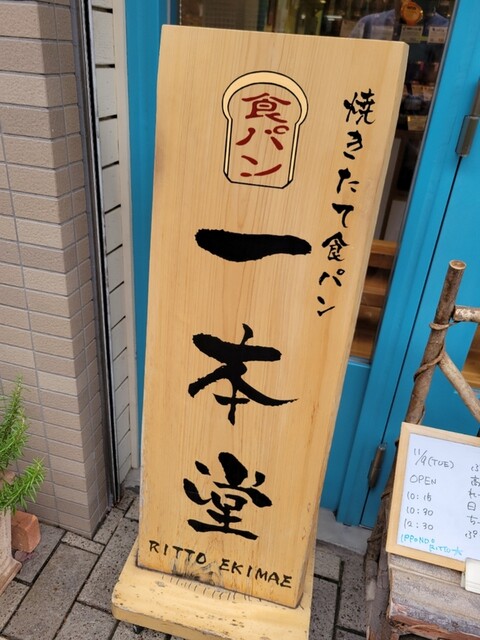 焼きたて食パン
食パン
一本堂
RITTO EKIMAE
11/9(TUE)
OPEN
10:15
10:30
12:30